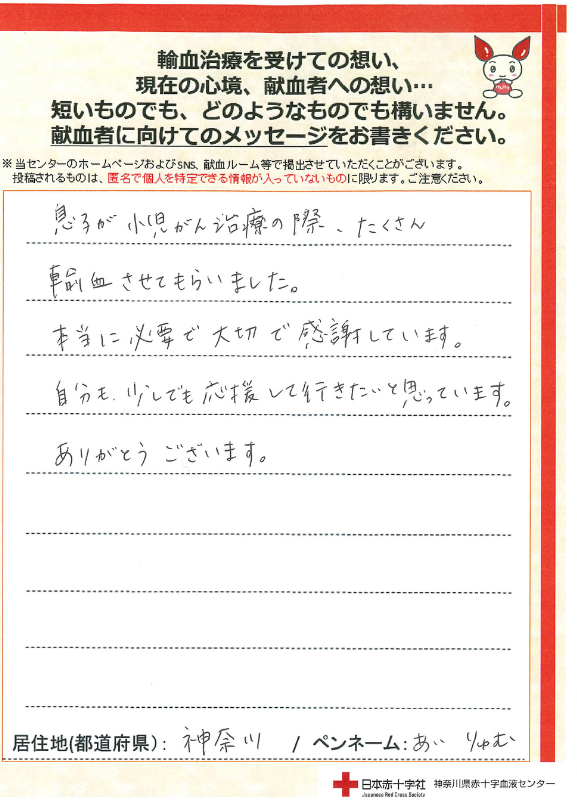 輸血治療を受けての想い、
現在の心境、献血者への想い…
短いものでも、どのようなものでも構いません。
献血者に向けてのメッセージをお書きください。
※当センターのホームページおよびSNS、献血ルーム等で掲出させていただくことがございます。
投稿されるものは、匿名で個人を特定できる情報が入っていないものに限ります。ご注意ください。
息子が小児がん治療の際、たくさん
輸血させてもらいました。
本当に必要で大切で感謝しています。
自分も、少しでも応援して行きたいと思っています。
ありがとうございます。
居住地(都道府県)： 神奈川 / ペンネーム：あい りゅむ
日本赤十字社 神奈川県赤十字血液センター
Japanese Red Cross Society